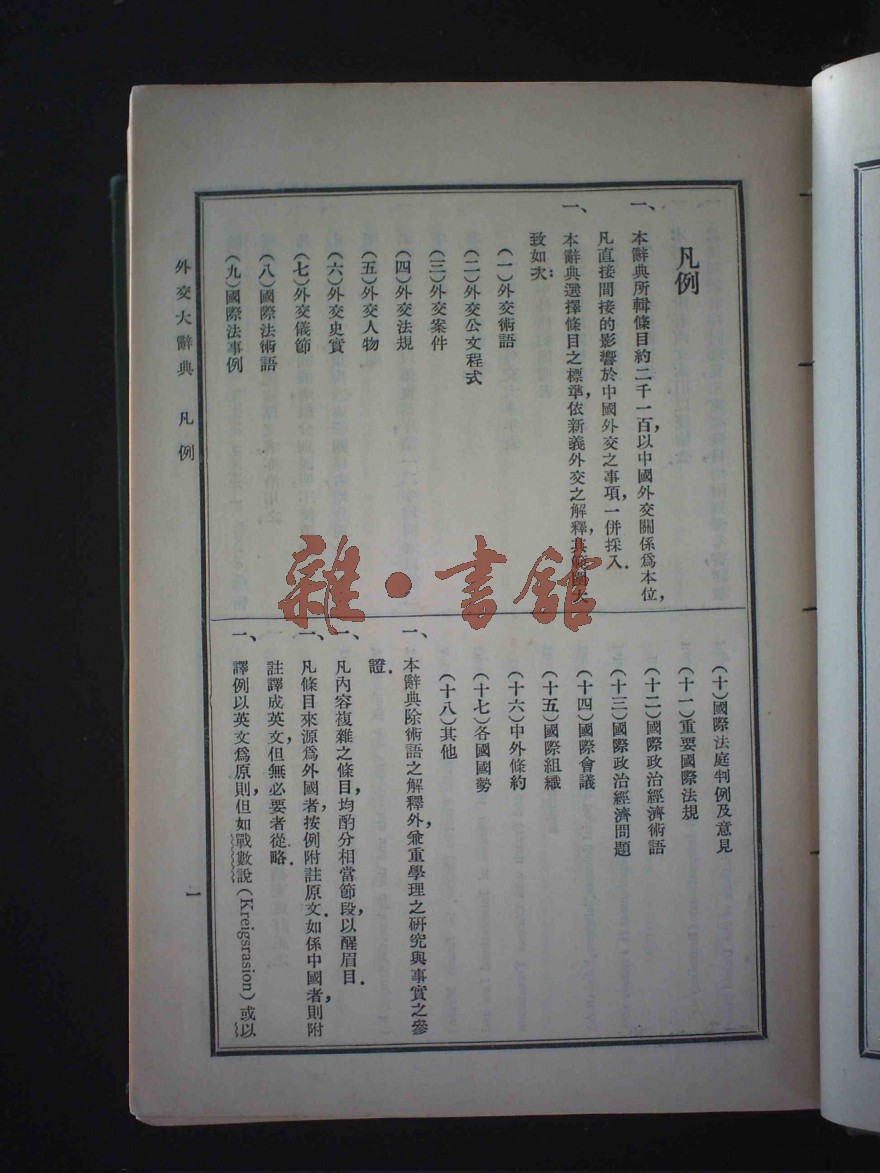 凡例
一、本辭典所輯條目約二千一百，以中國外交關係爲本位，
凡直接間接的影響於中國外交之事項，一併採入．
一、本辭典選擇條目之標準，依新義外交之解釋，其範圍大
致如次：
（一）外交術語
（二）外交公文程式
（三）外交案件
（四）外交法規
（五）外交人物
（六）外交史實
（七）外交儀節
（八）國際法術語
（九）國際法事例
（十）國際法庭判例及意見
（十一）重要國際法規
（十二）國際政治經濟術語
（十三）國際政治經濟問題
（十四）國際會議
（十五）國際組織
（十六）中外條約
（十七）各國國勢
（十八）其他
一、本辭典除術語之解釋外，兼重學理之研究與事實之參
證．
一、凡內容複雜之條目，均酌分相當節段，以醒眉目．
一、凡條目來源爲外國者，按例附註原文．如係中國者，則附
註譯成英文，但無必要者從略．
一、譯例以英文爲原則，但如戰數說（Kreigsrasion）或以
外交大辭典 凡例
一
雜·書館